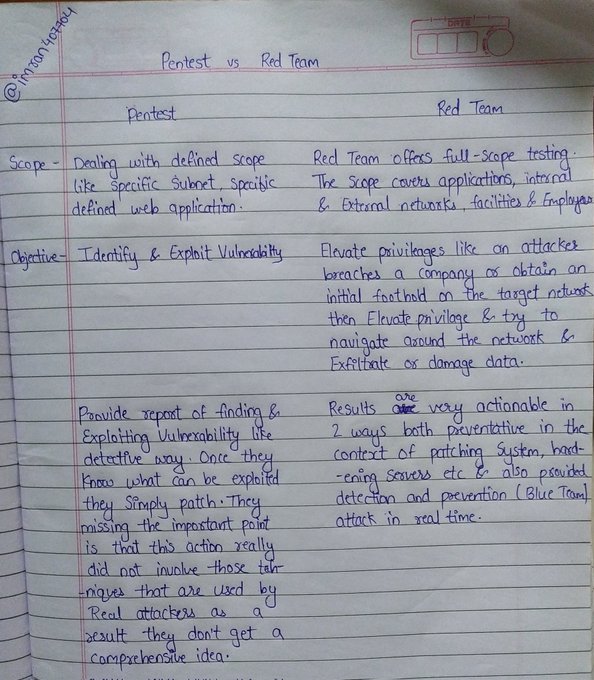 @imran407704
DATE
Pentest vs Red Team
Pentest
Red Team
Scope - Dealing with defined scope
like specific Subnet, specific
defined web application.
Red Team offers full-scope testing.
The scope covers applications, internal
& External networks, facilities & Employees
Objective - Identify & Exploit Vulnerability
Elevate privileages like an attacker
breaches a company or obtain an
initial foothold on the target network
then Elevate privilage & try to
navigate around the network &
Exfiltrate or damage data.
Provide report of finding &
Exploiting Vulnerability like
detective way. Once they
know what can be exploited
they simply patch. They
missing the important point
is that this action really
did not involve those teh-
-niques that are used by
Real attackers as a
result they don't get a
comprehensive idea.
Results are very actionable in
2 ways both preventative in the
context of patching System, hard-
-ening servers etc & also provided
detection and prevention (Blue Team)
attack in real time.